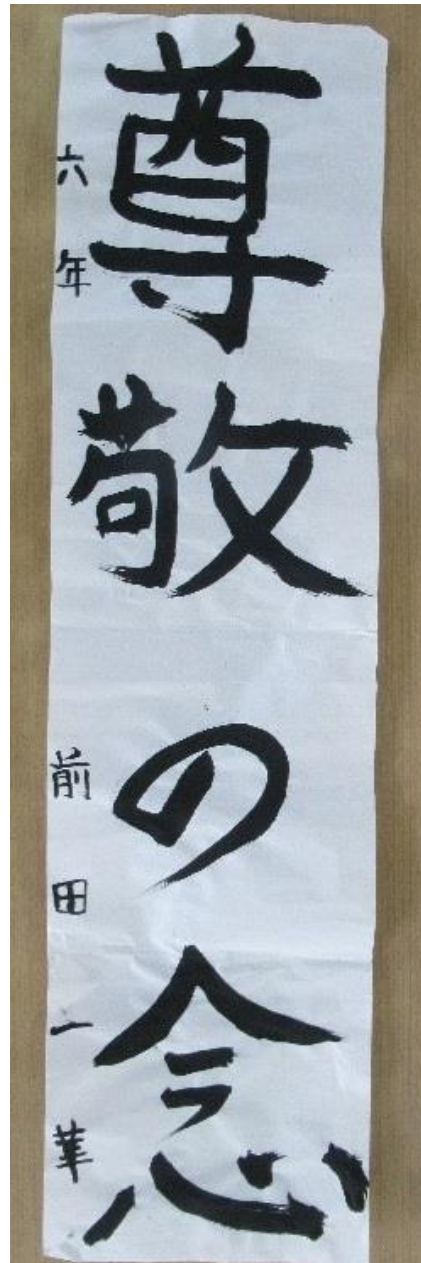 尊敬の念
六年 前田一華